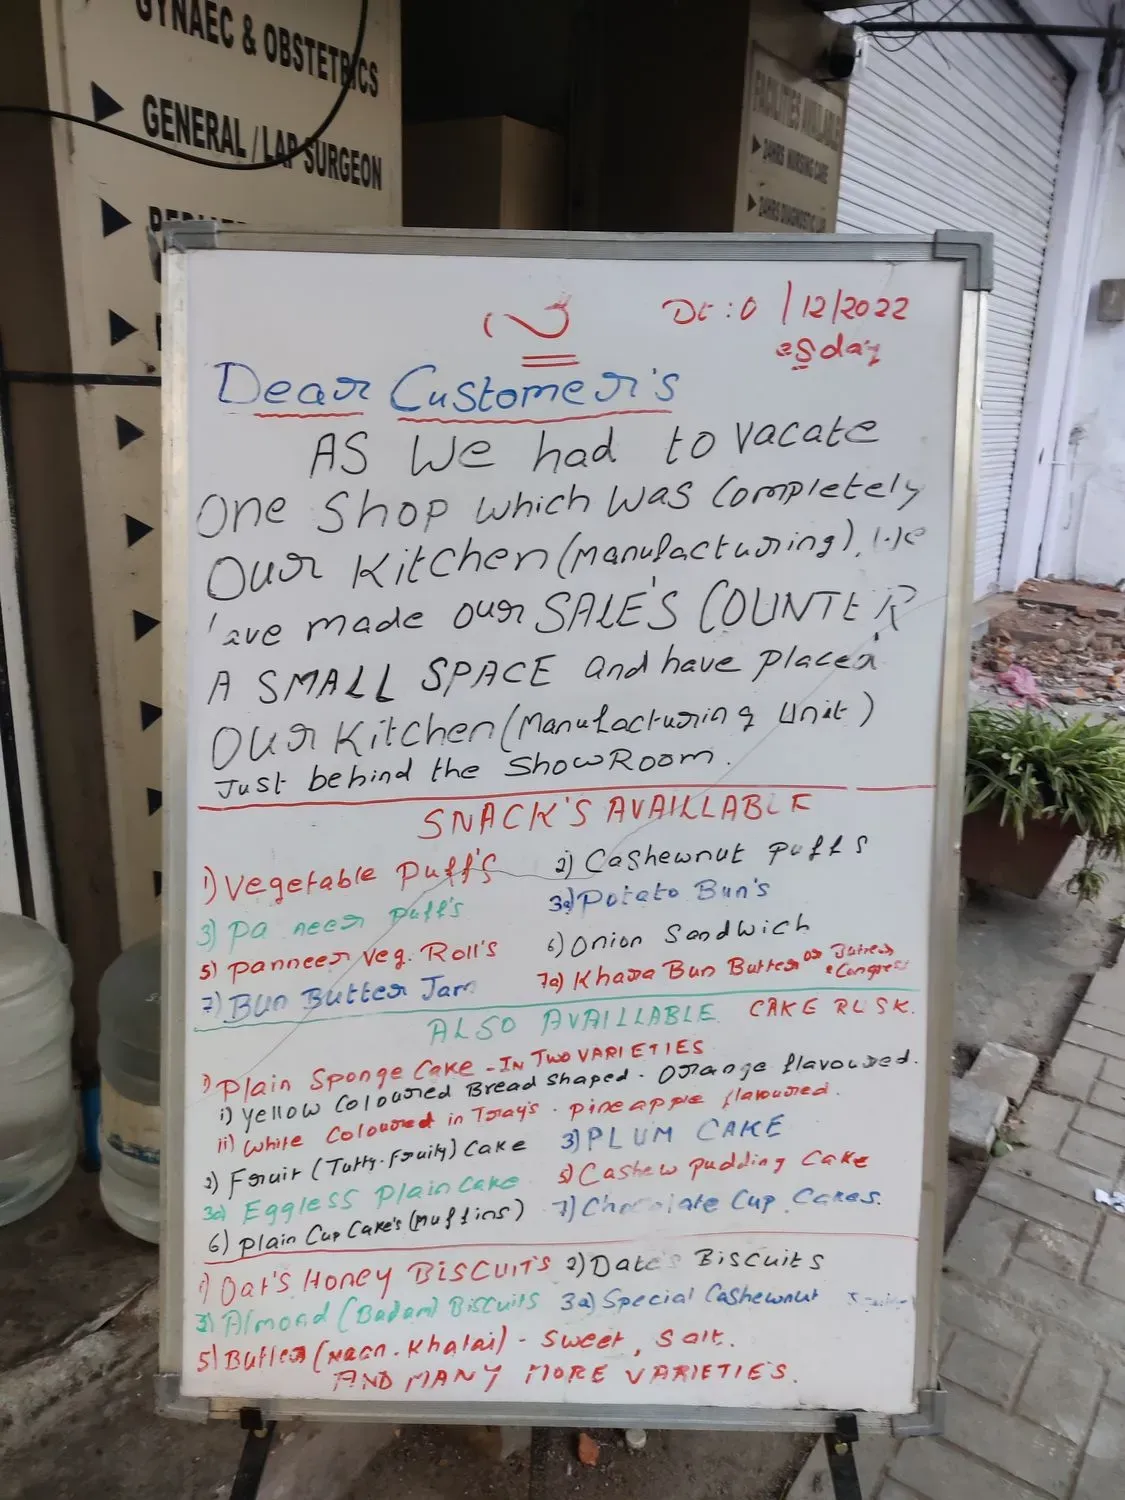 GYNAEC & OBSTETRICS
GENERAL / LAP SURGEON
FACILITIES AVAILABLE
24HRS NURSING CARE
24HRS DIAGNOSTIC LAB
Dt : 0 /12/2022
day
Dear Customer's
AS We had to vacate
One Shop which was Completely
Our Kitchen (manufacturing). We
'ave made our SALE'S COUNTER
A SMALL SPACE and have placed
Our Kitchen (Manufacturing Unit)
Just behind the ShowRoom.
SNACK'S AVAILLABLE
1) Vegetable Puff's 2) Cashewnut Puffs
3) Pa neer Puff's 3a) Potato Bun's
5) Panneer Veg. Roll's 6) Onion Sandwich
7) Bun Butter Jam 7a) Khara Bun Butter or Congress
ALSO AVAILLABLE CAKE RUSK.
1) Plain Sponge Cake - IN TWO VARIETIES
i) Yellow Coloured Bread Shaped - Orange flavoured.
ii) White Coloured in Tray's - Pineapple flavoured.
2) Fruit (Tutty-Fruity) Cake 3) PLUM CAKE
3a) Eggless Plain Cake 5) Cashew Pudding Cake
6) Plain Cup Cake's (Muffins) 7) Chocolate Cup Cakes.
1) Oat's Honey BISCUITS 2) Date's Biscuits
3) Almond (Badam) Biscuits 3a) Special Cashewnut
5) Butter (Naan-Khatai) - Sweet, Salt.
AND MANY MORE VARIETIES.